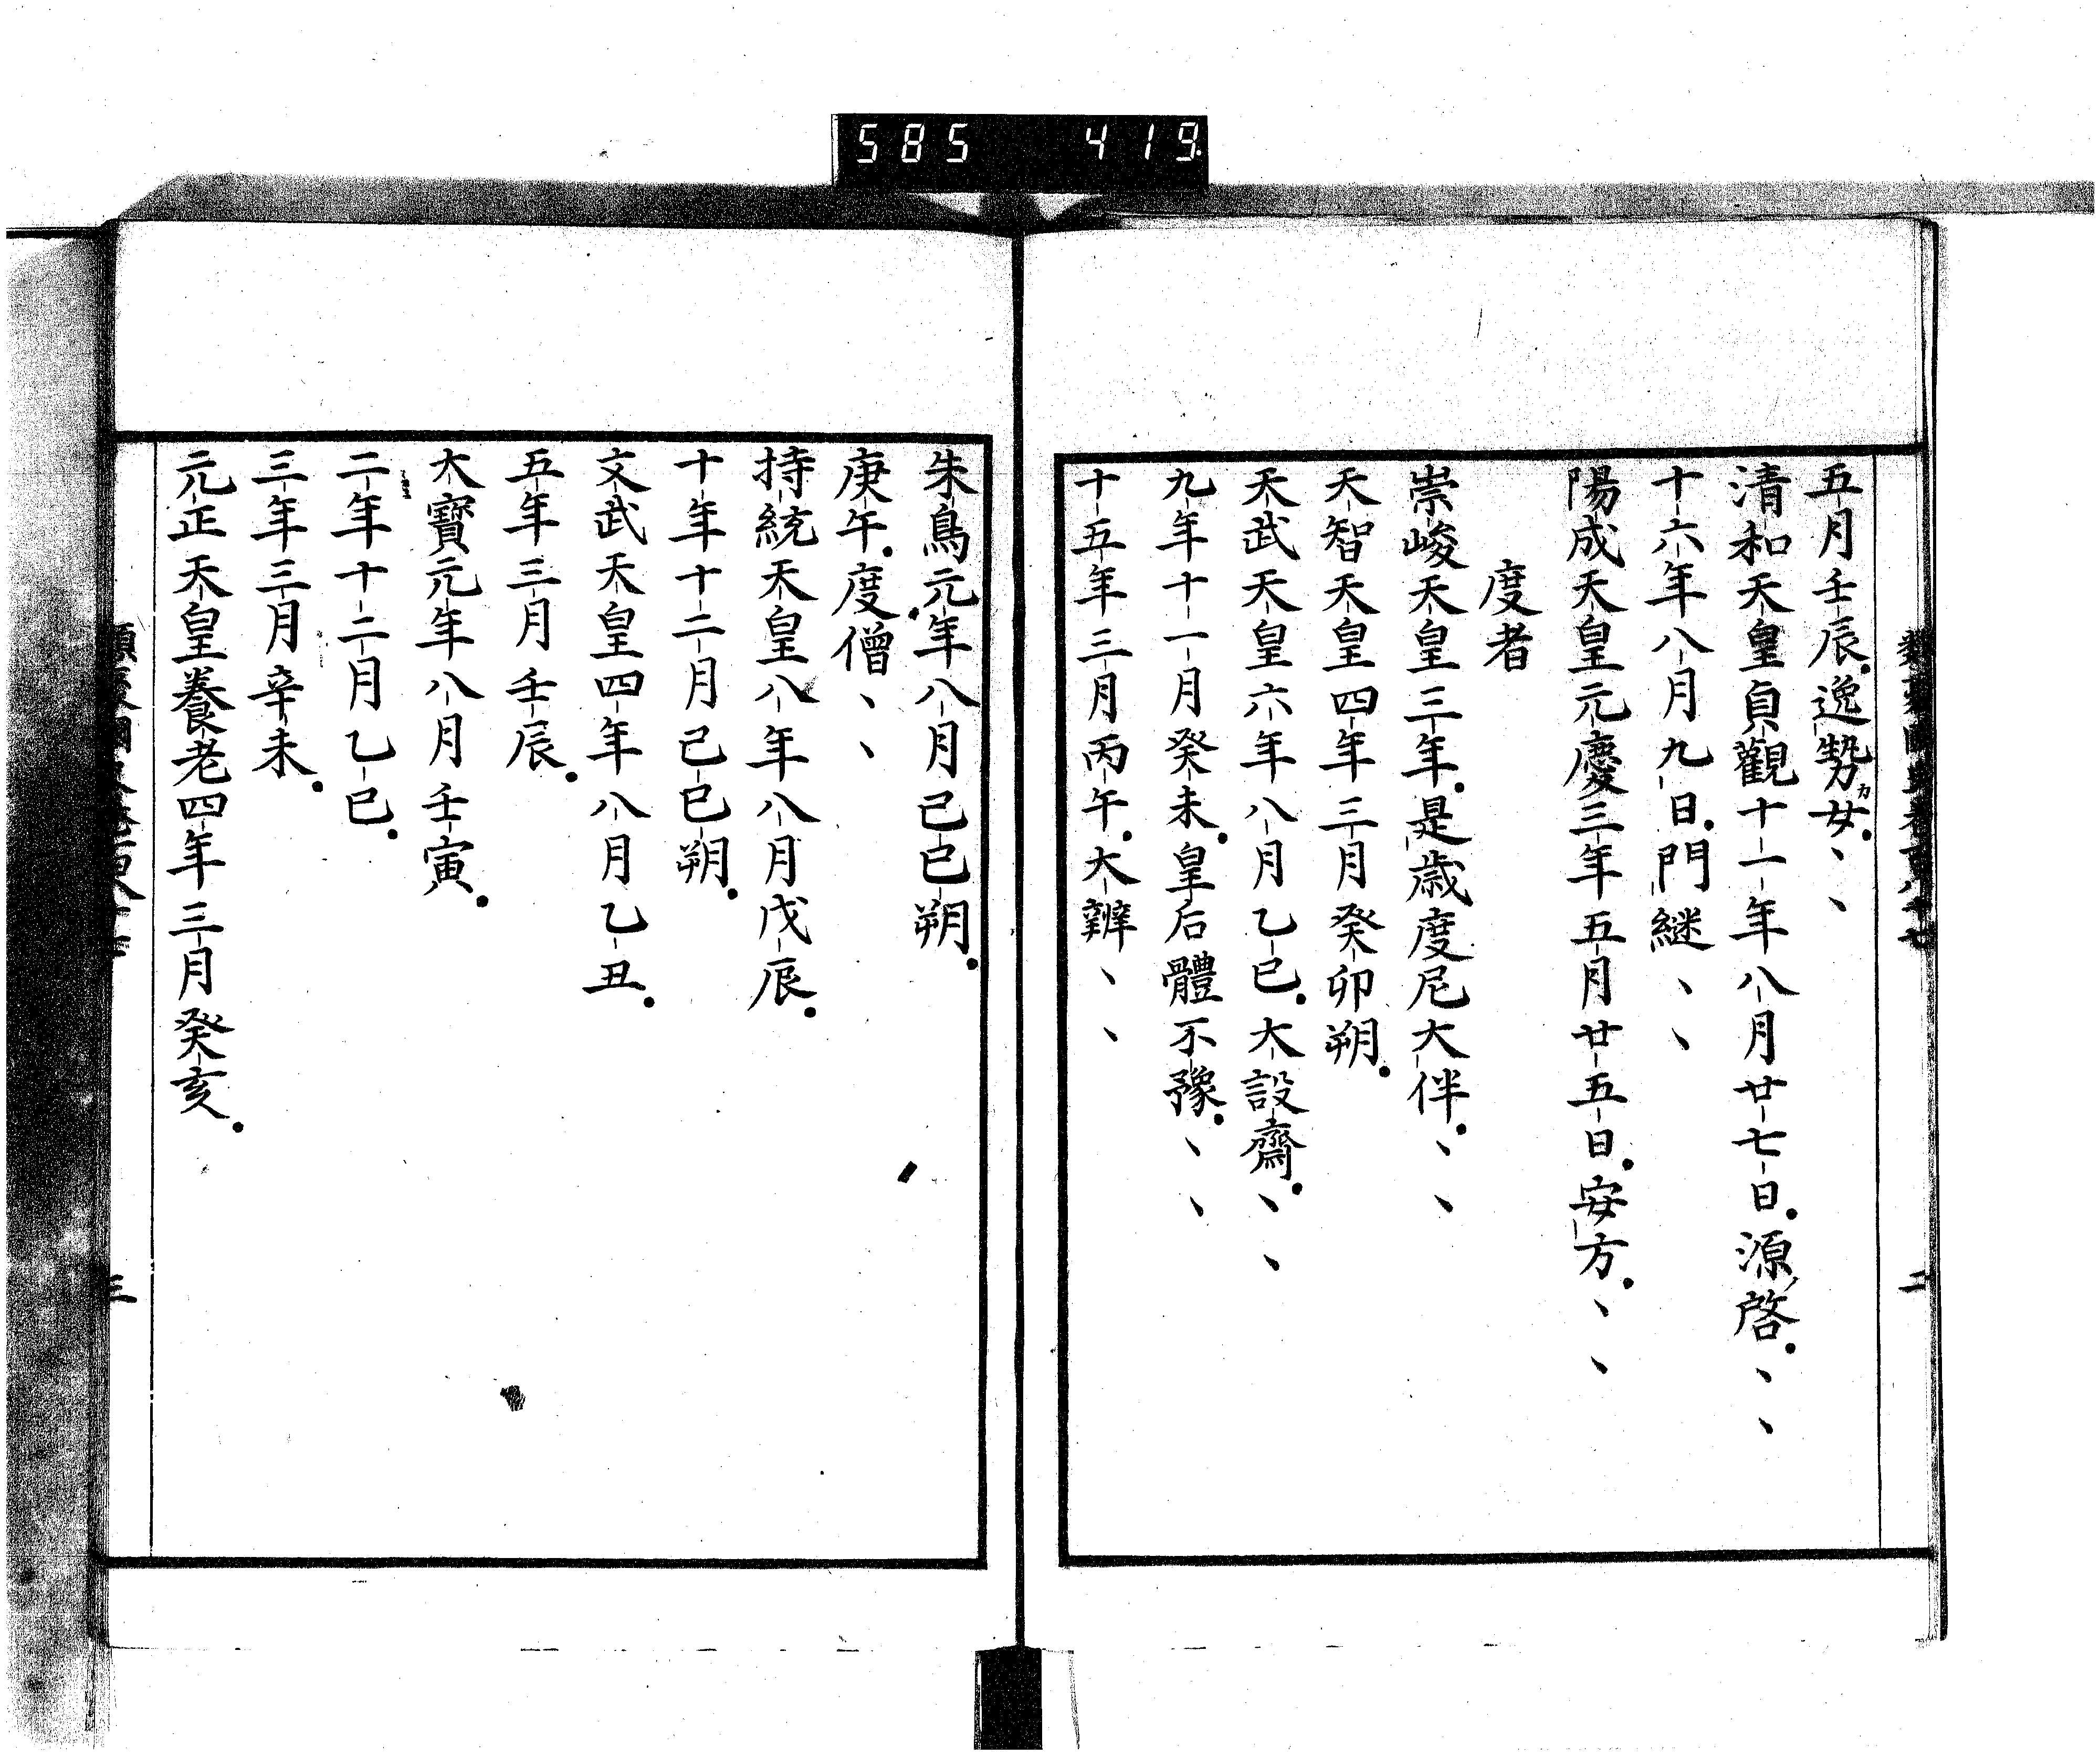 585 419
五月壬辰．逸勢女．、、
清和天皇貞觀十一年八月廿七日．源啓．、、
十六年八月九日．門継、、
陽成天皇元慶三年五月廿五日．安方．、、
度者
崇峻天皇三年．是歳度尼大伴．、、
天智天皇四年三月癸卯朔．
天武天皇六年八月乙巳．大設齋．、、
九年十一月癸未．皇后體不豫．、、
十五年三月丙午．大辨、、
二
朱鳥元年八月己巳朔．
庚午．度僧、、
持統天皇八年八月戊辰．
十年十二月己巳朔．
文武天皇四年八月乙丑．
五年三月壬辰．
大寶元年八月壬寅．
二年十二月乙巳．
三年三月辛未．
元正天皇養老四年三月癸亥．
三